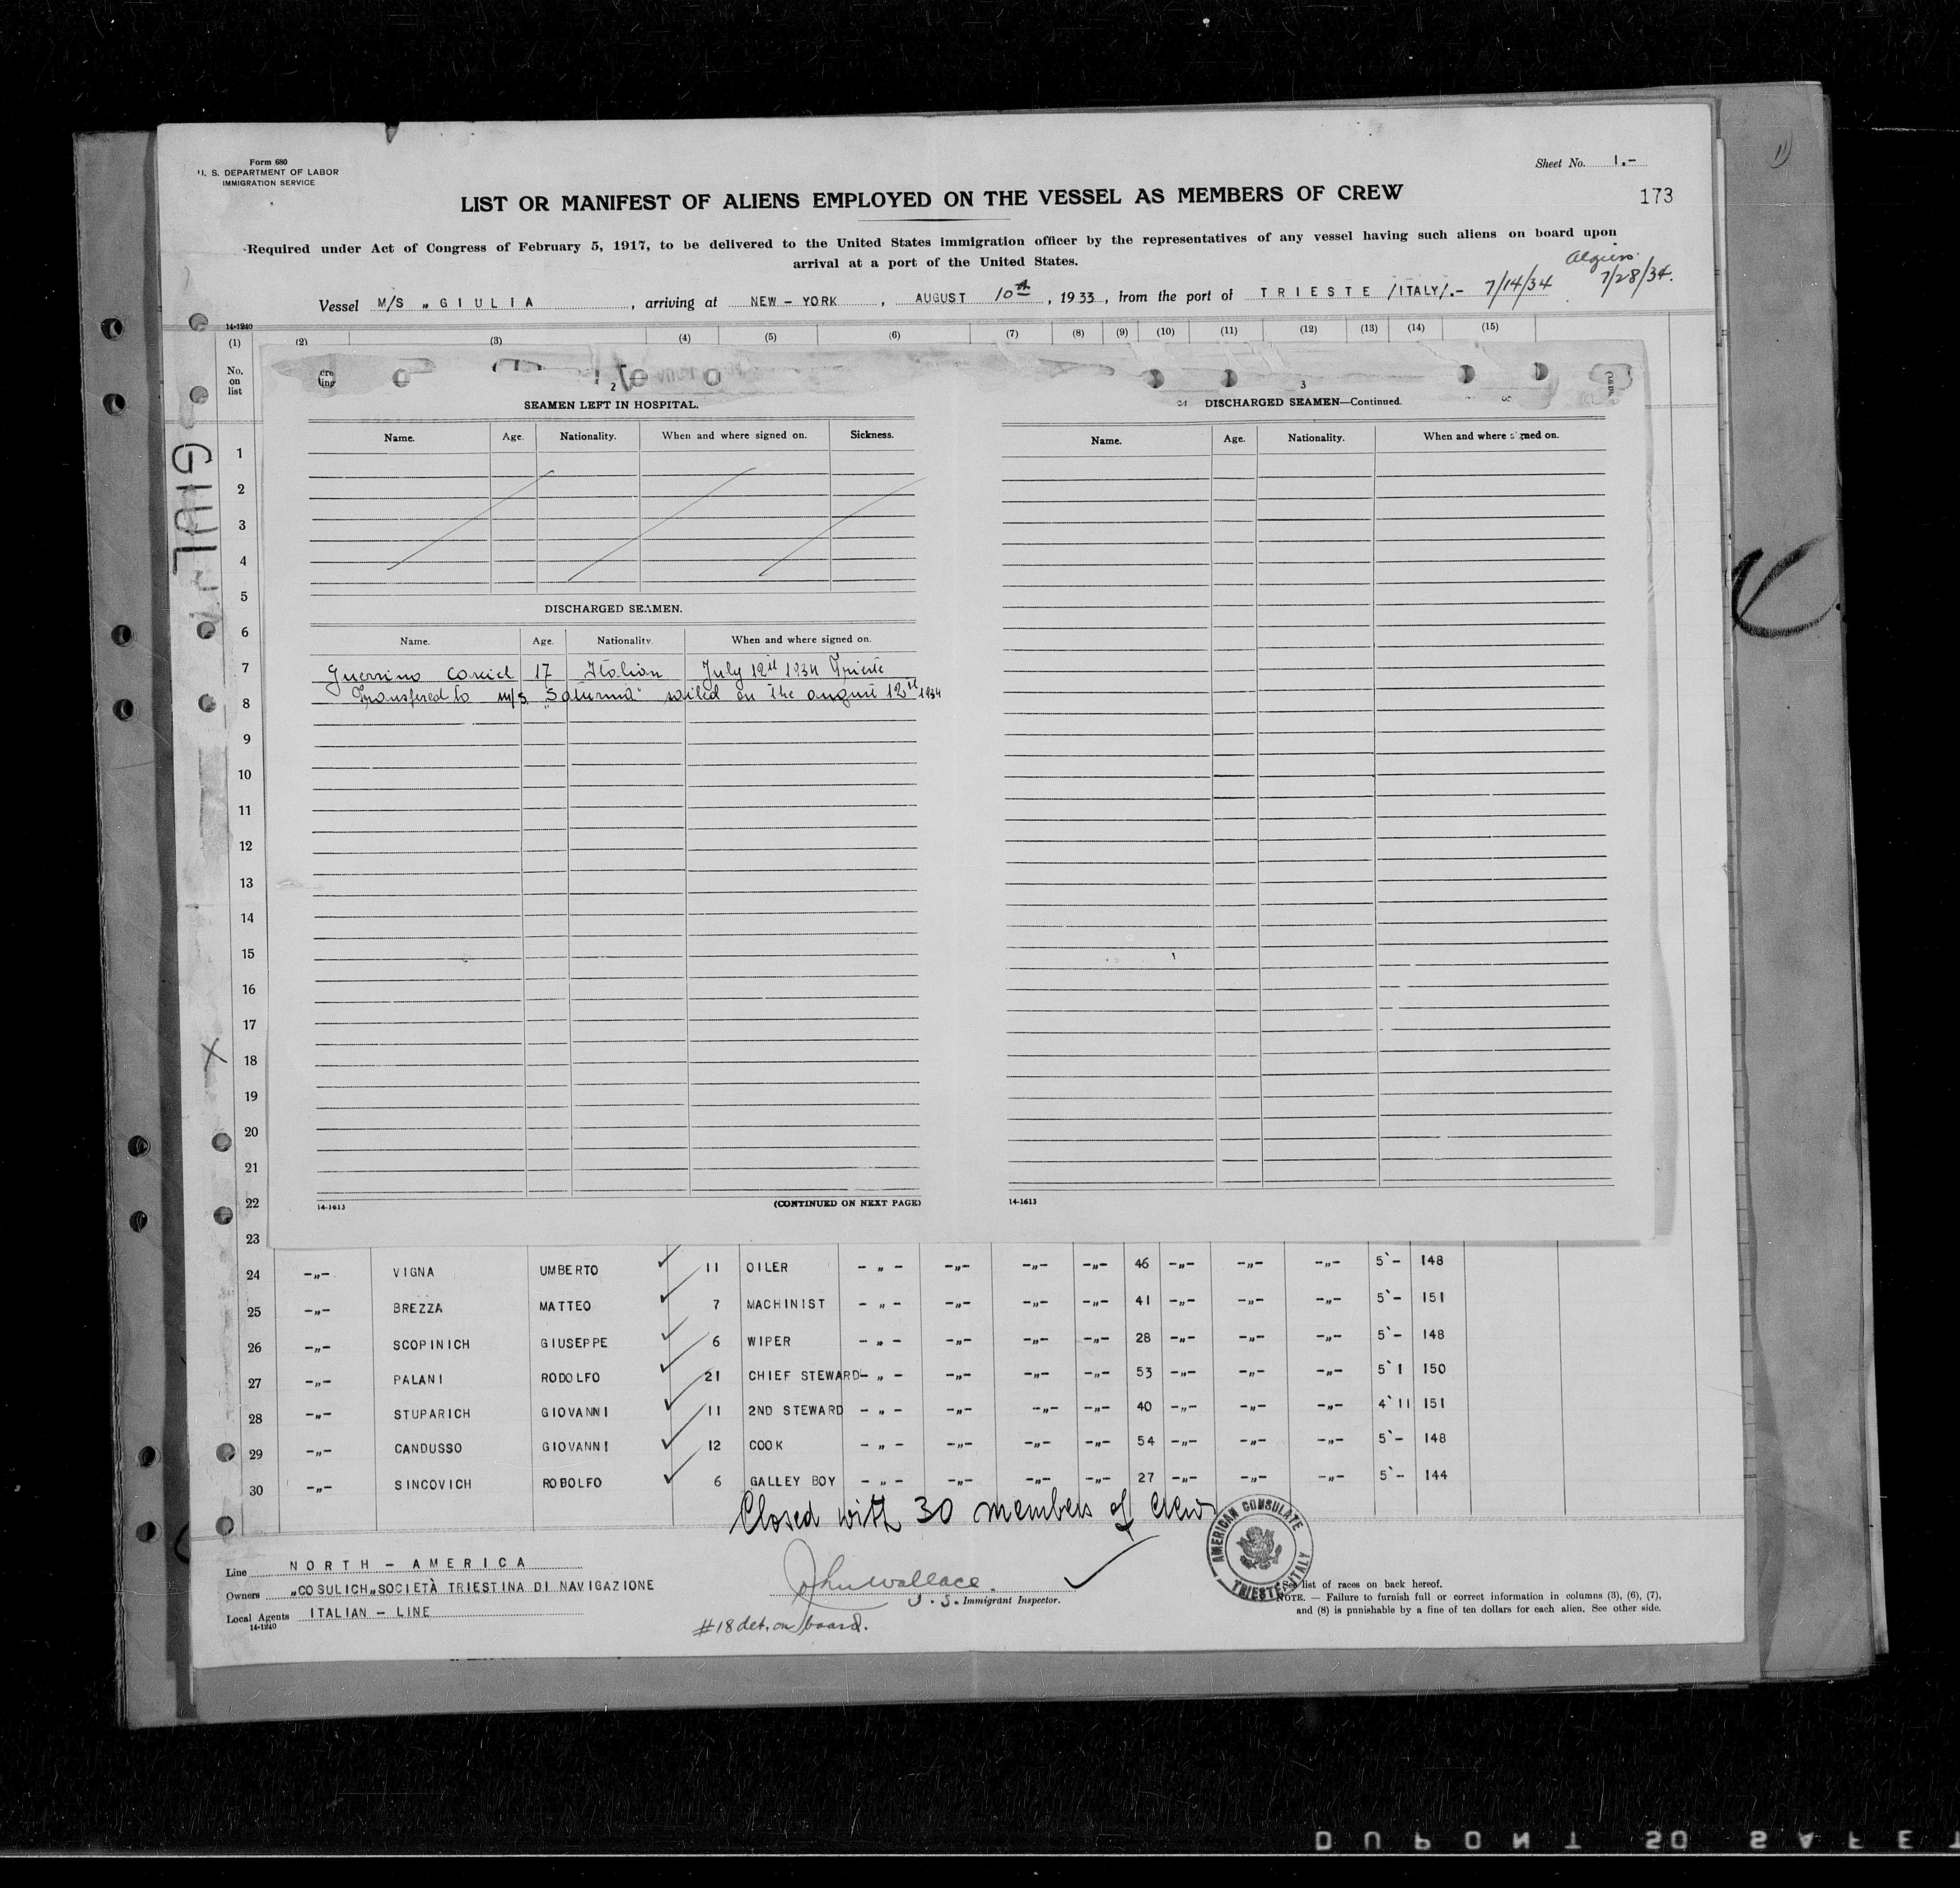 Form 680
U. S. DEPARTMENT OF LABOR
IMMIGRATION SERVICE
Sheet No. 1.-
173
LIST OR MANIFEST OF ALIENS EMPLOYED ON THE VESSEL AS MEMBERS OF CREW
Required under Act of Congress of February 5, 1917, to be delivered to the United States immigration officer by the representatives of any vessel having such aliens on board upon
arrival at a port of the United States.
Algiers.
7/28/34.
Vessel M/S „GIULIA , arriving at NEW-YORK , AUGUST 10th , 1933, from the port of TRIESTE /ITALY/.- 7/14/34
14-1240
(1) (2) (3) (4) (5) (6) (7) (8) (9) (10) (11) (12) (13) (14) (15)
No.
on
list
GIULIA
2
SEAMEN LEFT IN HOSPITAL.
Name. Age. Nationality. When and where signed on. Sickness.
DISCHARGED SEAMEN.
Name. Age. Nationality. When and where signed on.
Guerrino 17 Italian July 12th 1934 Trieste
Transfered to m/s. "Saturnia" sailed on the august 12th 1934
(CONTINUED ON NEXT PAGE)
14-1613
3
DISCHARGED SEAMEN—Continued.
Name. Age. Nationality. When and where signed on.
14-1613
1
2
3
4
5
6
7
8
9
10
11
12
13
14
15
16
17
18
19
20
21
22
23
24 -„- VIGNA UMBERTO 11 OILER - „ - -„- -„- -„- 46 -„- -„- -„- 5`- 148
25 -„- BREZZA MATTEO 7 MACHINIST - „ - -„- -„- -„- 41 -„- -„- -„- 5`- 151
26 -„- SCOPINICH GIUSEPPE 6 WIPER - „ - -„- -„- -„- 28 -„- -„- -„- 5`- 148
27 -„- PALANI RODOLFO 21 CHIEF STEWARD- „ - -„- -„- -„- 53 -„- -„- -„- 5`1 150
28 -„- STUPARICH GIOVANNI 11 2ND STEWARD - „ - -„- -„- -„- 40 -„- -„- -„- 4`11 151
29 -„- CANDUSSO GIOVANNI 12 COOK - „ - -„- -„- -„- 54 -„- -„- -„- 5`- 148
30 -„- SINCOVICH RODOLFO 6 GALLEY BOY - „ - -„- -„- -„- 27 -„- -„- -„- 5`- 144
Closed with 30 members of crew
AMERICAN CONSULATE
TRIESTE, ITALY
Line NORTH - AMERICA
Owners „COSULICH„SOCIETÀ TRIESTINA DI NAVIGAZIONE
Local Agents ITALIAN - LINE
14-1240
John Wallace.
U. S. Immigrant Inspector.
#18 det. on board.
See list of races on back hereof.
NOTE. — Failure to furnish full or correct information in columns (3), (6), (7),
and (8) is punishable by a fine of ten dollars for each alien. See other side.
DUPONT SO SAFET